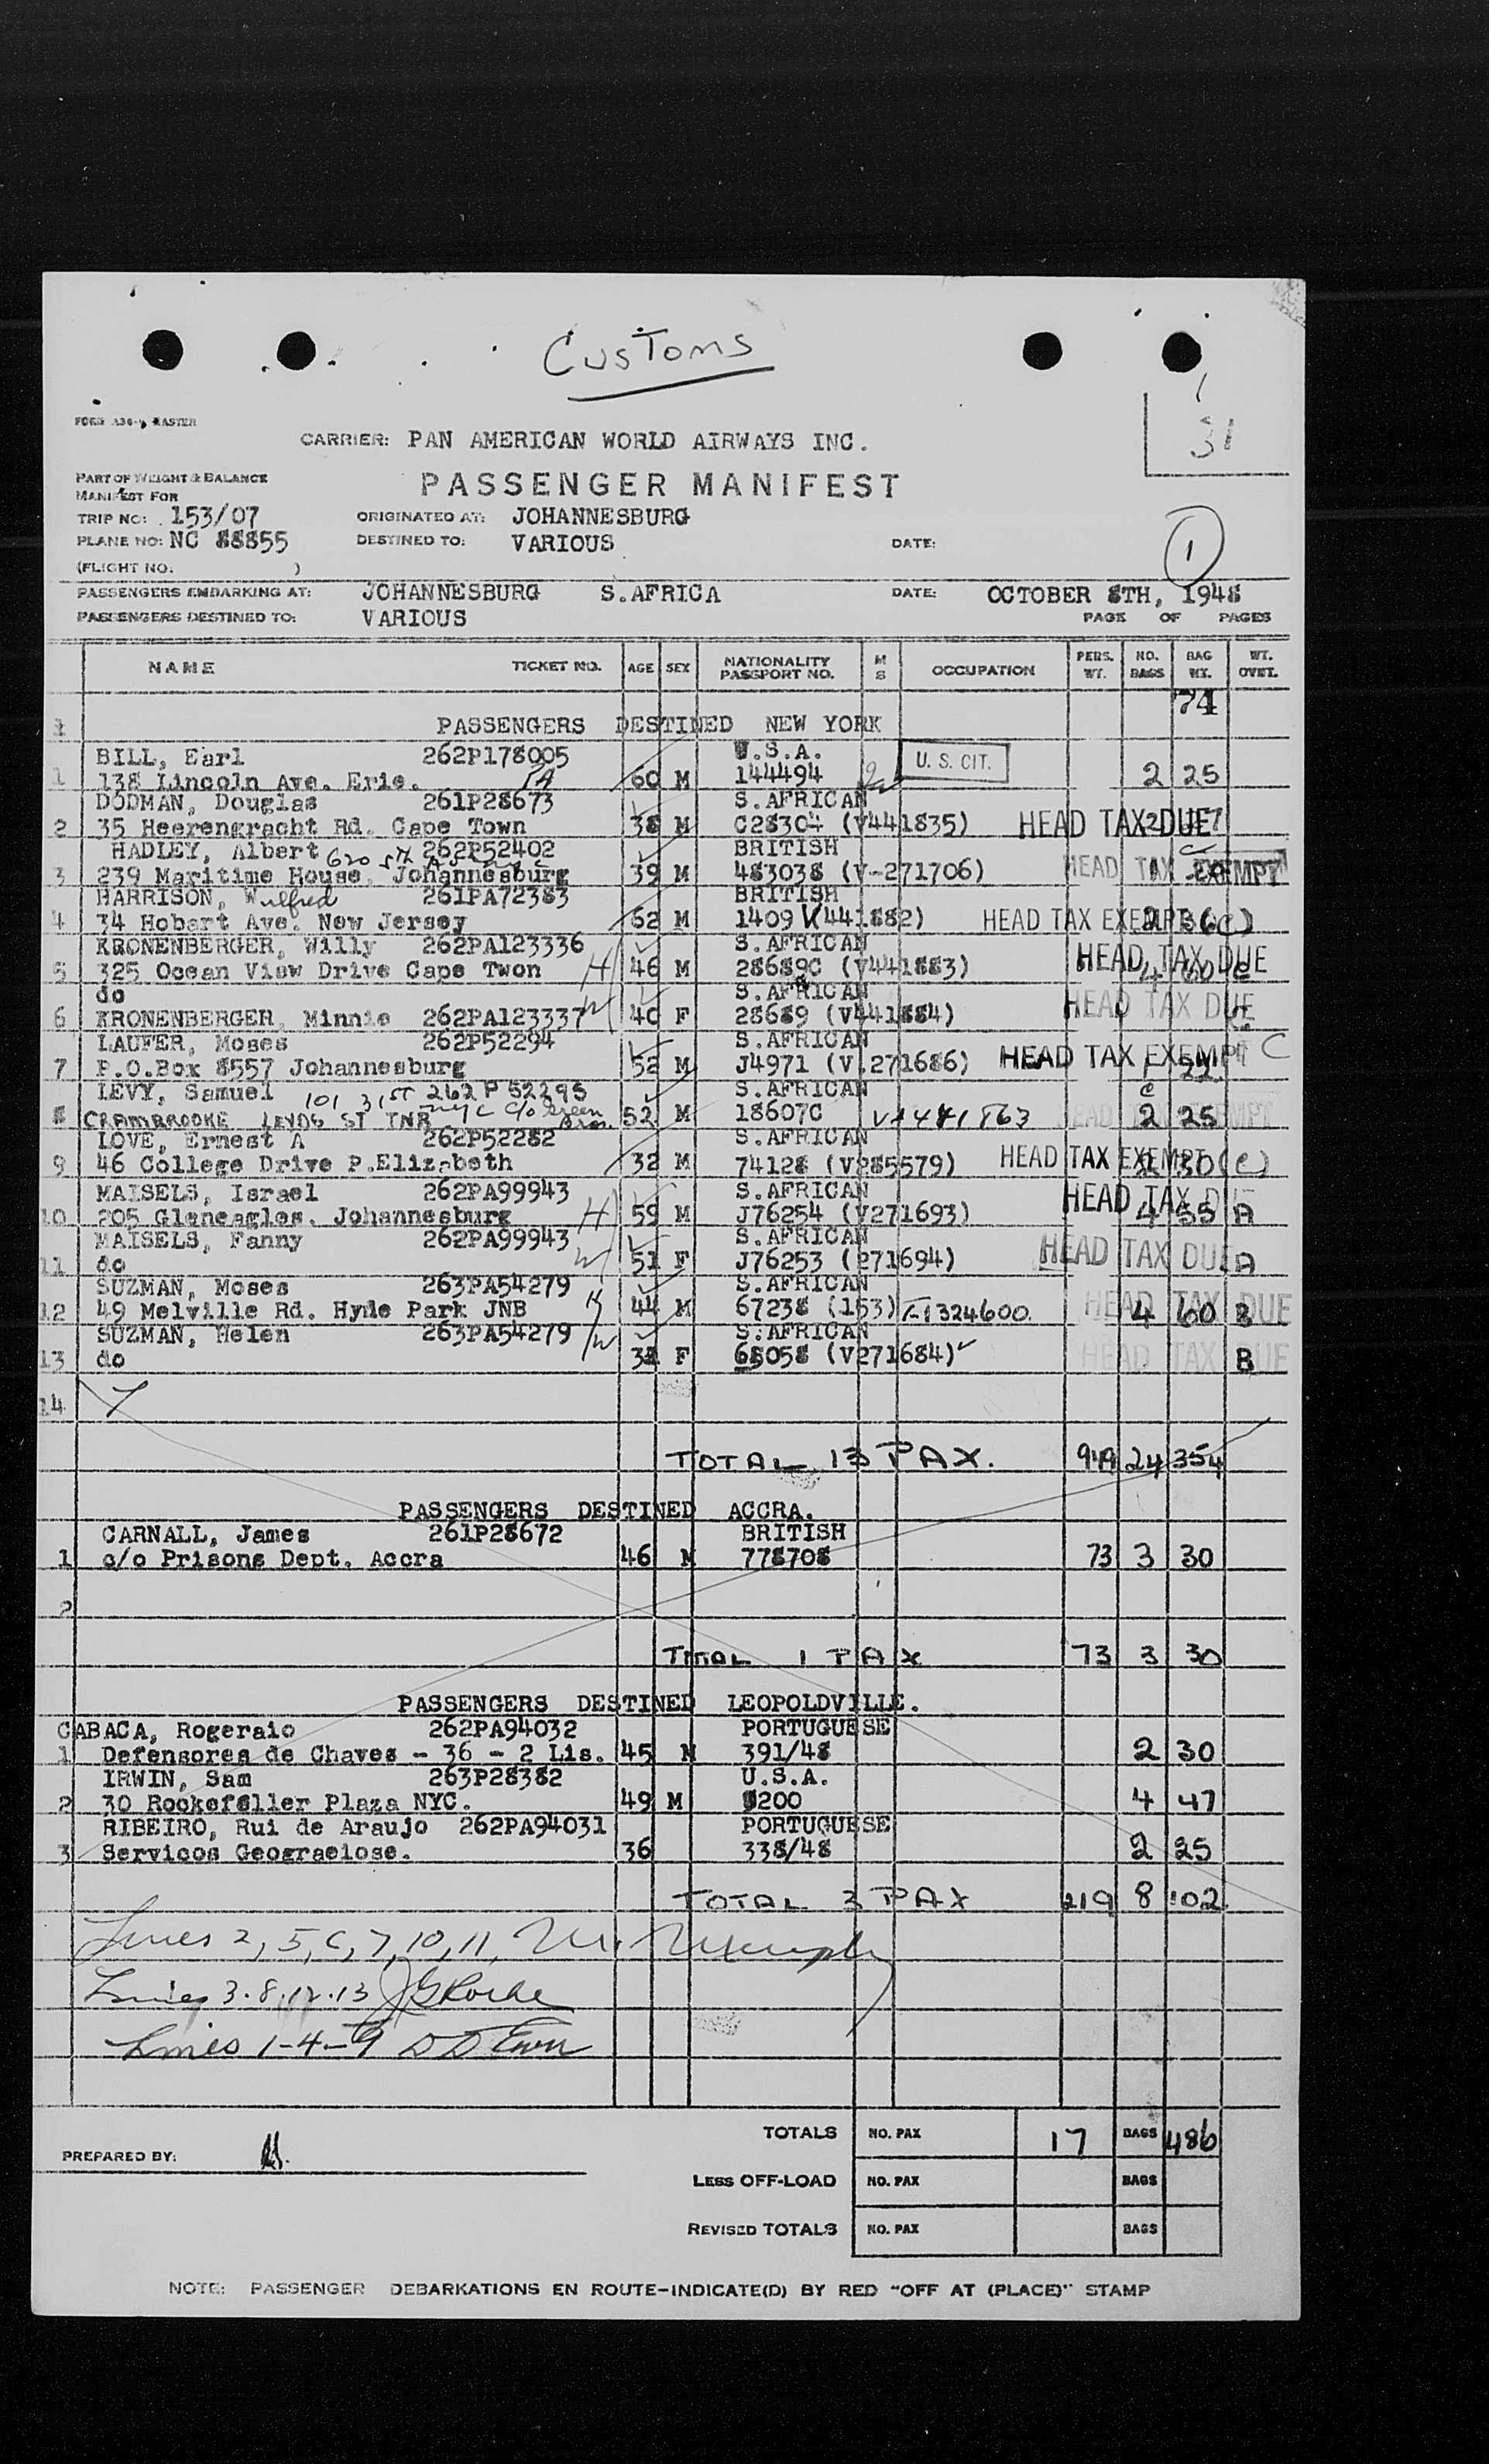 Customs
31
CARRIER: PAN AMERICAN WORLD AIRWAYS INC.
PART OF WEIGHT & BALANCE
MANIFEST FOR
PASSENGER MANIFEST
TRIP NO: 153/07 ORIGINATED AT: JOHANNESBURG
PLANE NO: NC 88855 DESTINED TO: VARIOUS DATE: 1
(FLIGHT NO. )
PASSENGERS EMBARKING AT: JOHANNESBURG S.AFRICA DATE: OCTOBER 8TH, 1948
PASSENGERS DESTINED TO: VARIOUS PAGE OF PAGES
NAME TICKET NO. AGE SEX NATIONALITY PASSPORT NO. M S OCCUPATION PERS. WT. NO. BAGS BAG WT. WT. OVET.
74
PASSENGERS DESTINED NEW YORK
BILL, Earl 262P178005 U.S.A. U. S. CIT.
1 138 Lincoln Ave. Erie. PA 60 M 144494 2 25
DODMAN, Douglas 261P28673 S.AFRICAN
2 35 Heerengracht Rd. Cape Town 38 M C28304 (V441835) HEAD TAX DUE
HADLEY, Albert 262P52402 BRITISH
3 239 Maritime House, Johannesburg 39 M 483038 (V-271706) HEAD TAX EXEMPT
HARRISON, Wulfred 261PA72383 BRITISH
4 34 Hobart Ave. New Jersey 62 M 1409 V441882) HEAD TAX EXEMPT (C)
KRONENBERGER, Willy 262PA123336 S.AFRICAN
5 325 Ocean View Drive Cape Twon H 46 M 28689C (V441883) HEAD TAX DUE
do S.AFRICAN
6 KRONENBERGER, Minnie 262PA123337 W 40 F 28689 (V441884) HEAD TAX DUE
LAUFER, Moses 262P52294 S.AFRICAN
7 P.O.Box 8557 Johannesburg 52 M J4971 (V.271686) HEAD TAX EXEMPT C
LEVY, Samuel 101 31ST 262 P 52295 S.AFRICAN
8 CRAMBROOKE LEYDS ST JNB 52 M 18607C V441863 2 25
LOVE, Ernest A 262P52282 S.AFRICAN
9 46 College Drive P.Elizabeth 32 M 74128 (V285579) HEAD TAX EXEMPT 30 (C)
MAISELS, Israel 262PA99943 S.AFRICAN
10 205 Gleneagles. Johannesburg H 59 M J76254 (V271693) HEAD TAX DUE 4 55 A
MAISELS, Fanny 262PA99943 S.AFRICAN
11 do W 51 F J76253 (271694) HEAD TAX DUE A
SUZMAN, Moses 263PA54279 S.AFRICAN
12 49 Melville Rd. Hyde Park JNB H 44 M 67238 (153) T-1324600 HEAD TAX DUE 4 60 B
SUZMAN, Helen 263PA54279 S.AFRICAN
13 do W F 68058 (V271684) HEAD TAX DUE B
14
TOTAL 13 PAX. 949 24 354
PASSENGERS DESTINED ACCRA.
CARNALL, James 261P28672 BRITISH
1 c/o Prisons Dept. Accra 46 M 778708 73 3 30
2
TOTAL 1 PAX 73 3 30
PASSENGERS DESTINED LEOPOLDVILLE.
CABACA, Rogeraio 262PA94032 PORTUGUESE
1 Defensores de Chaves - 36 - 2 Lis. 45 M 391/48 2 30
IRWIN, Sam 263P28382 U.S.A.
2 30 Rockefeller Plaza NYC. 49 M 9200 4 47
RIBEIRO, Rui de Araujo 262PA94031 PORTUGUESE
3 Servicos Geograelose. 36 338/48 2 25
TOTAL 3 PAX 219 8 102
Lines 2, 5, 6, 7, 10, 11,
Lines 3.8.12.13
Lines 1-4-9
TOTALS NO. PAX 17 BAGS 486
PREPARED BY:
LESS OFF-LOAD NO. PAX BAGS
REVISED TOTALS NO. PAX BAGS
NOTE: PASSENGER DEBARKATIONS EN ROUTE-INDICATE(D) BY RED "OFF AT (PLACE)" STAMP